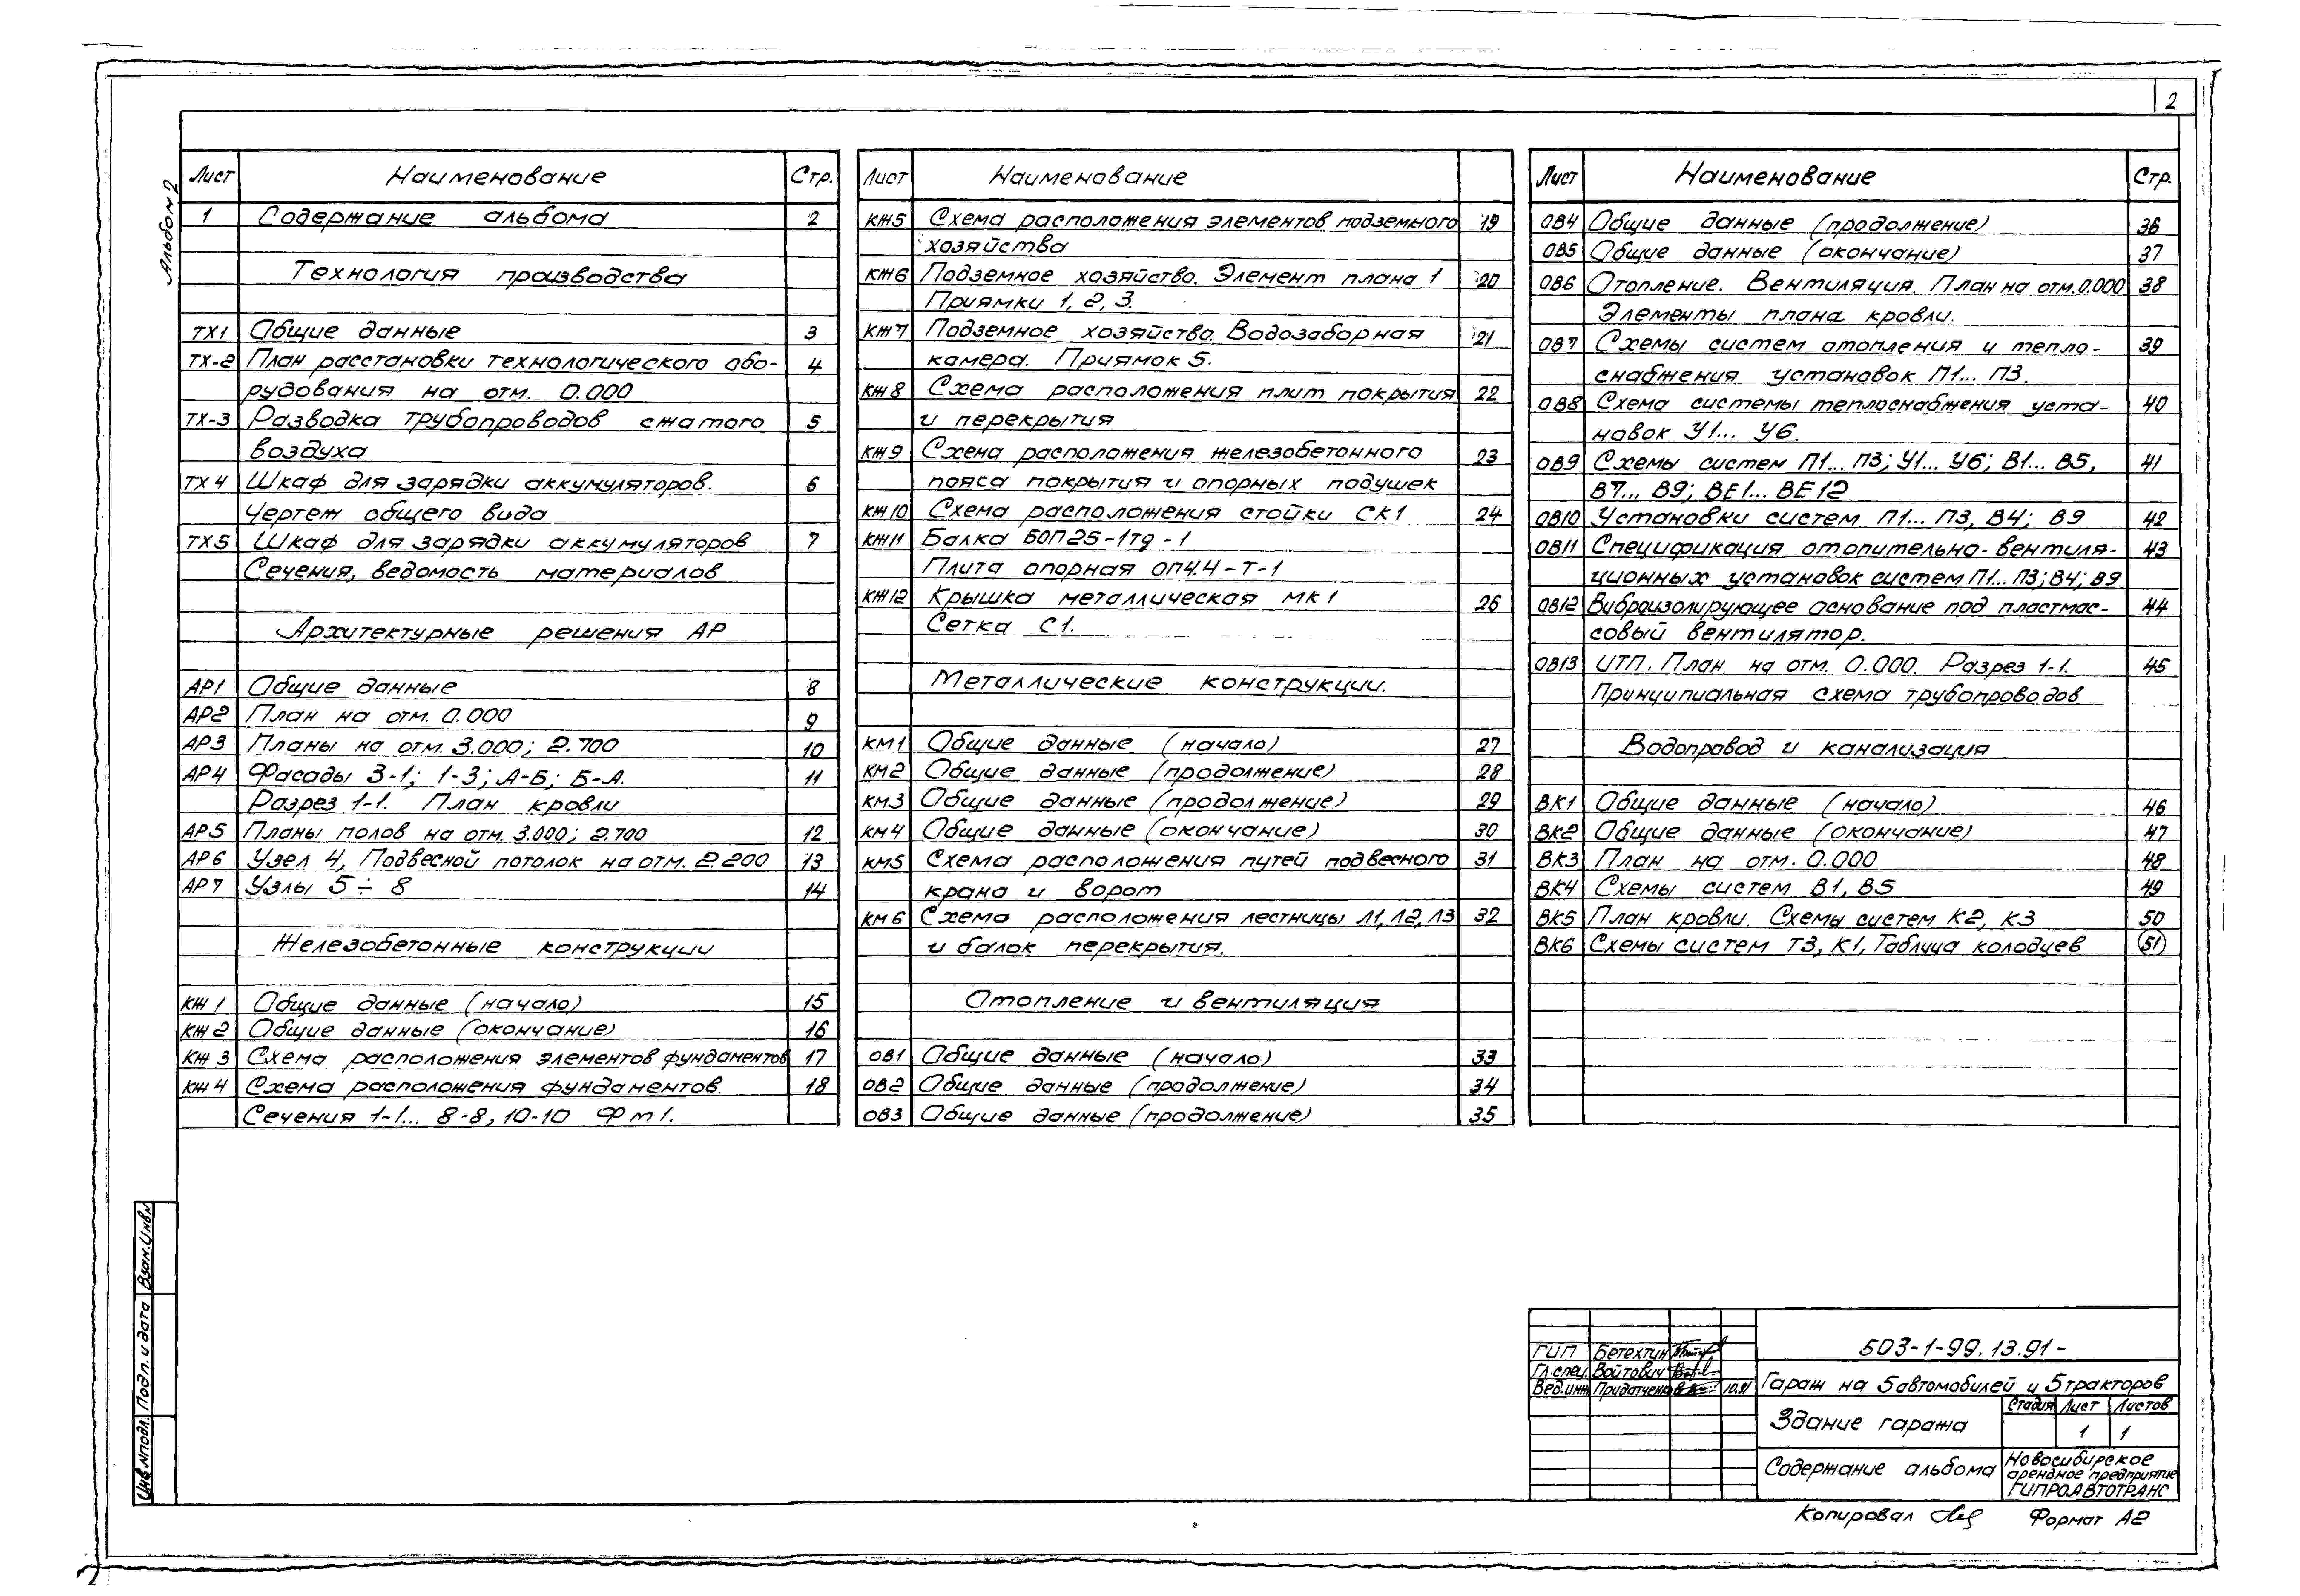 2
Альбом 2
Лист Наименование Стр.
1 Содержание альбома 2
Технология производства
ТХ1 Общие данные 3
ТХ-2 План расстановки технологического обо- 4
рудования на отм. 0.000
ТХ-3 Разводка трубопроводов сжатого 5
воздуха
ТХ4 Шкаф для зарядки аккумуляторов. 6
Чертеж общего вида
ТХ5 Шкаф для зарядки аккумуляторов 7
Сечения, ведомость материалов
Архитектурные решения АР
АР1 Общие данные 8
АР2 План на отм. 0.000 9
АР3 Планы на отм. 3.000; 2.700 10
АР4 Фасады 3-1; 1-3; А-Б; Б-А. 11
Разрез 1-1. План кровли
АР5 Планы полов на отм. 3.000; 2.700 12
АР6 Узел 4, Подвесной потолок на отм. 2.200 13
АР7 Узлы 5÷8 14
Железобетонные конструкции
КЖ1 Общие данные (начало) 15
КЖ2 Общие данные (окончание) 16
КЖ3 Схема расположения элементов фундаментов 17
КЖ4 Схема расположения фундаментов. 18
Сечения 1-1... 8-8, 10-10 Фм1.
Лист Наименование
КЖ5 Схема расположения элементов подземного 19
хозяйства
КЖ6 Подземное хозяйство. Элемент плана 1 20
Приямки 1, 2, 3.
КЖ7 Подземное хозяйство. Водозаборная 21
камера. Приямок 5.
КЖ8 Схема расположения плит покрытия 22
и перекрытия
КЖ9 Схема расположения железобетонного 23
пояса покрытия и опорных подушек
КЖ10 Схема расположения стойки СК1 24
КЖ11 Балка БОП25-1тд-1
Плита опорная ОП4.4-Т-1
КЖ12 Крышка металлическая МК1 26
Сетка С1.
Металлические конструкции.
КМ1 Общие данные (начало) 27
КМ2 Общие данные (продолжение) 28
КМ3 Общие данные (продолжение) 29
КМ4 Общие данные (окончание) 30
КМ5 Схема расположения путей подвесного 31
крана и ворот
КМ6 Схема расположения лестницы Л1, Л2, Л3 32
и балок перекрытия.
Отопление и вентиляция
ОВ1 Общие данные (начало) 33
ОВ2 Общие данные (продолжение) 34
ОВ3 Общие данные (продолжение) 35
Лист Наименование Стр.
ОВ4 Общие данные (продолжение) 36
ОВ5 Общие данные (окончание) 37
ОВ6 Отопление. Вентиляция. План на отм. 0.000 38
Элементы плана кровли.
ОВ7 Схемы систем отопления и тепло- 39
снабжения установок П1... П3.
ОВ8 Схема системы теплоснабжения уста- 40
новок У1... У6.
ОВ9 Схемы систем П1... П3; У1... У6; В1... В5, 41
В7... В9; ВЕ1... ВЕ12
ОВ10 Установки систем П1... П3, В4; В9 42
ОВ11 Спецификация отопительно-вентиля- 43
ционных установок систем П1... П3; В4; В9
ОВ12 Виброизолирующее основание под пластмас- 44
совый вентилятор.
ОВ13 ИТП. План на отм. 0.000. Разрез 1-1. 45
Принципиальная схема трубопроводов
Водопровод и канализация
ВК1 Общие данные (начало) 46
ВК2 Общие данные (окончание) 47
ВК3 План на отм. 0.000 48
ВК4 Схемы систем В1, В5 49
ВК5 План кровли. Схемы систем К2, К3 50
ВК6 Схемы систем Т3, К1, Таблица колодцев 51
Взам.инв.№
Подп. и дата
Инв.№подл.
ГИП Бетехтин
Гл.спец. Войтович
Вед.инж. Придатченко 10.91
503-1-99.13.91-
Гараж на 5 автомобилей и 5 тракторов
Здание гаража
Стадия Лист Листов
1 1
Содержание альбома
Новосибирское
арендное предприятие
ГИПРОАВТОТРАНС
Копировал Формат А2